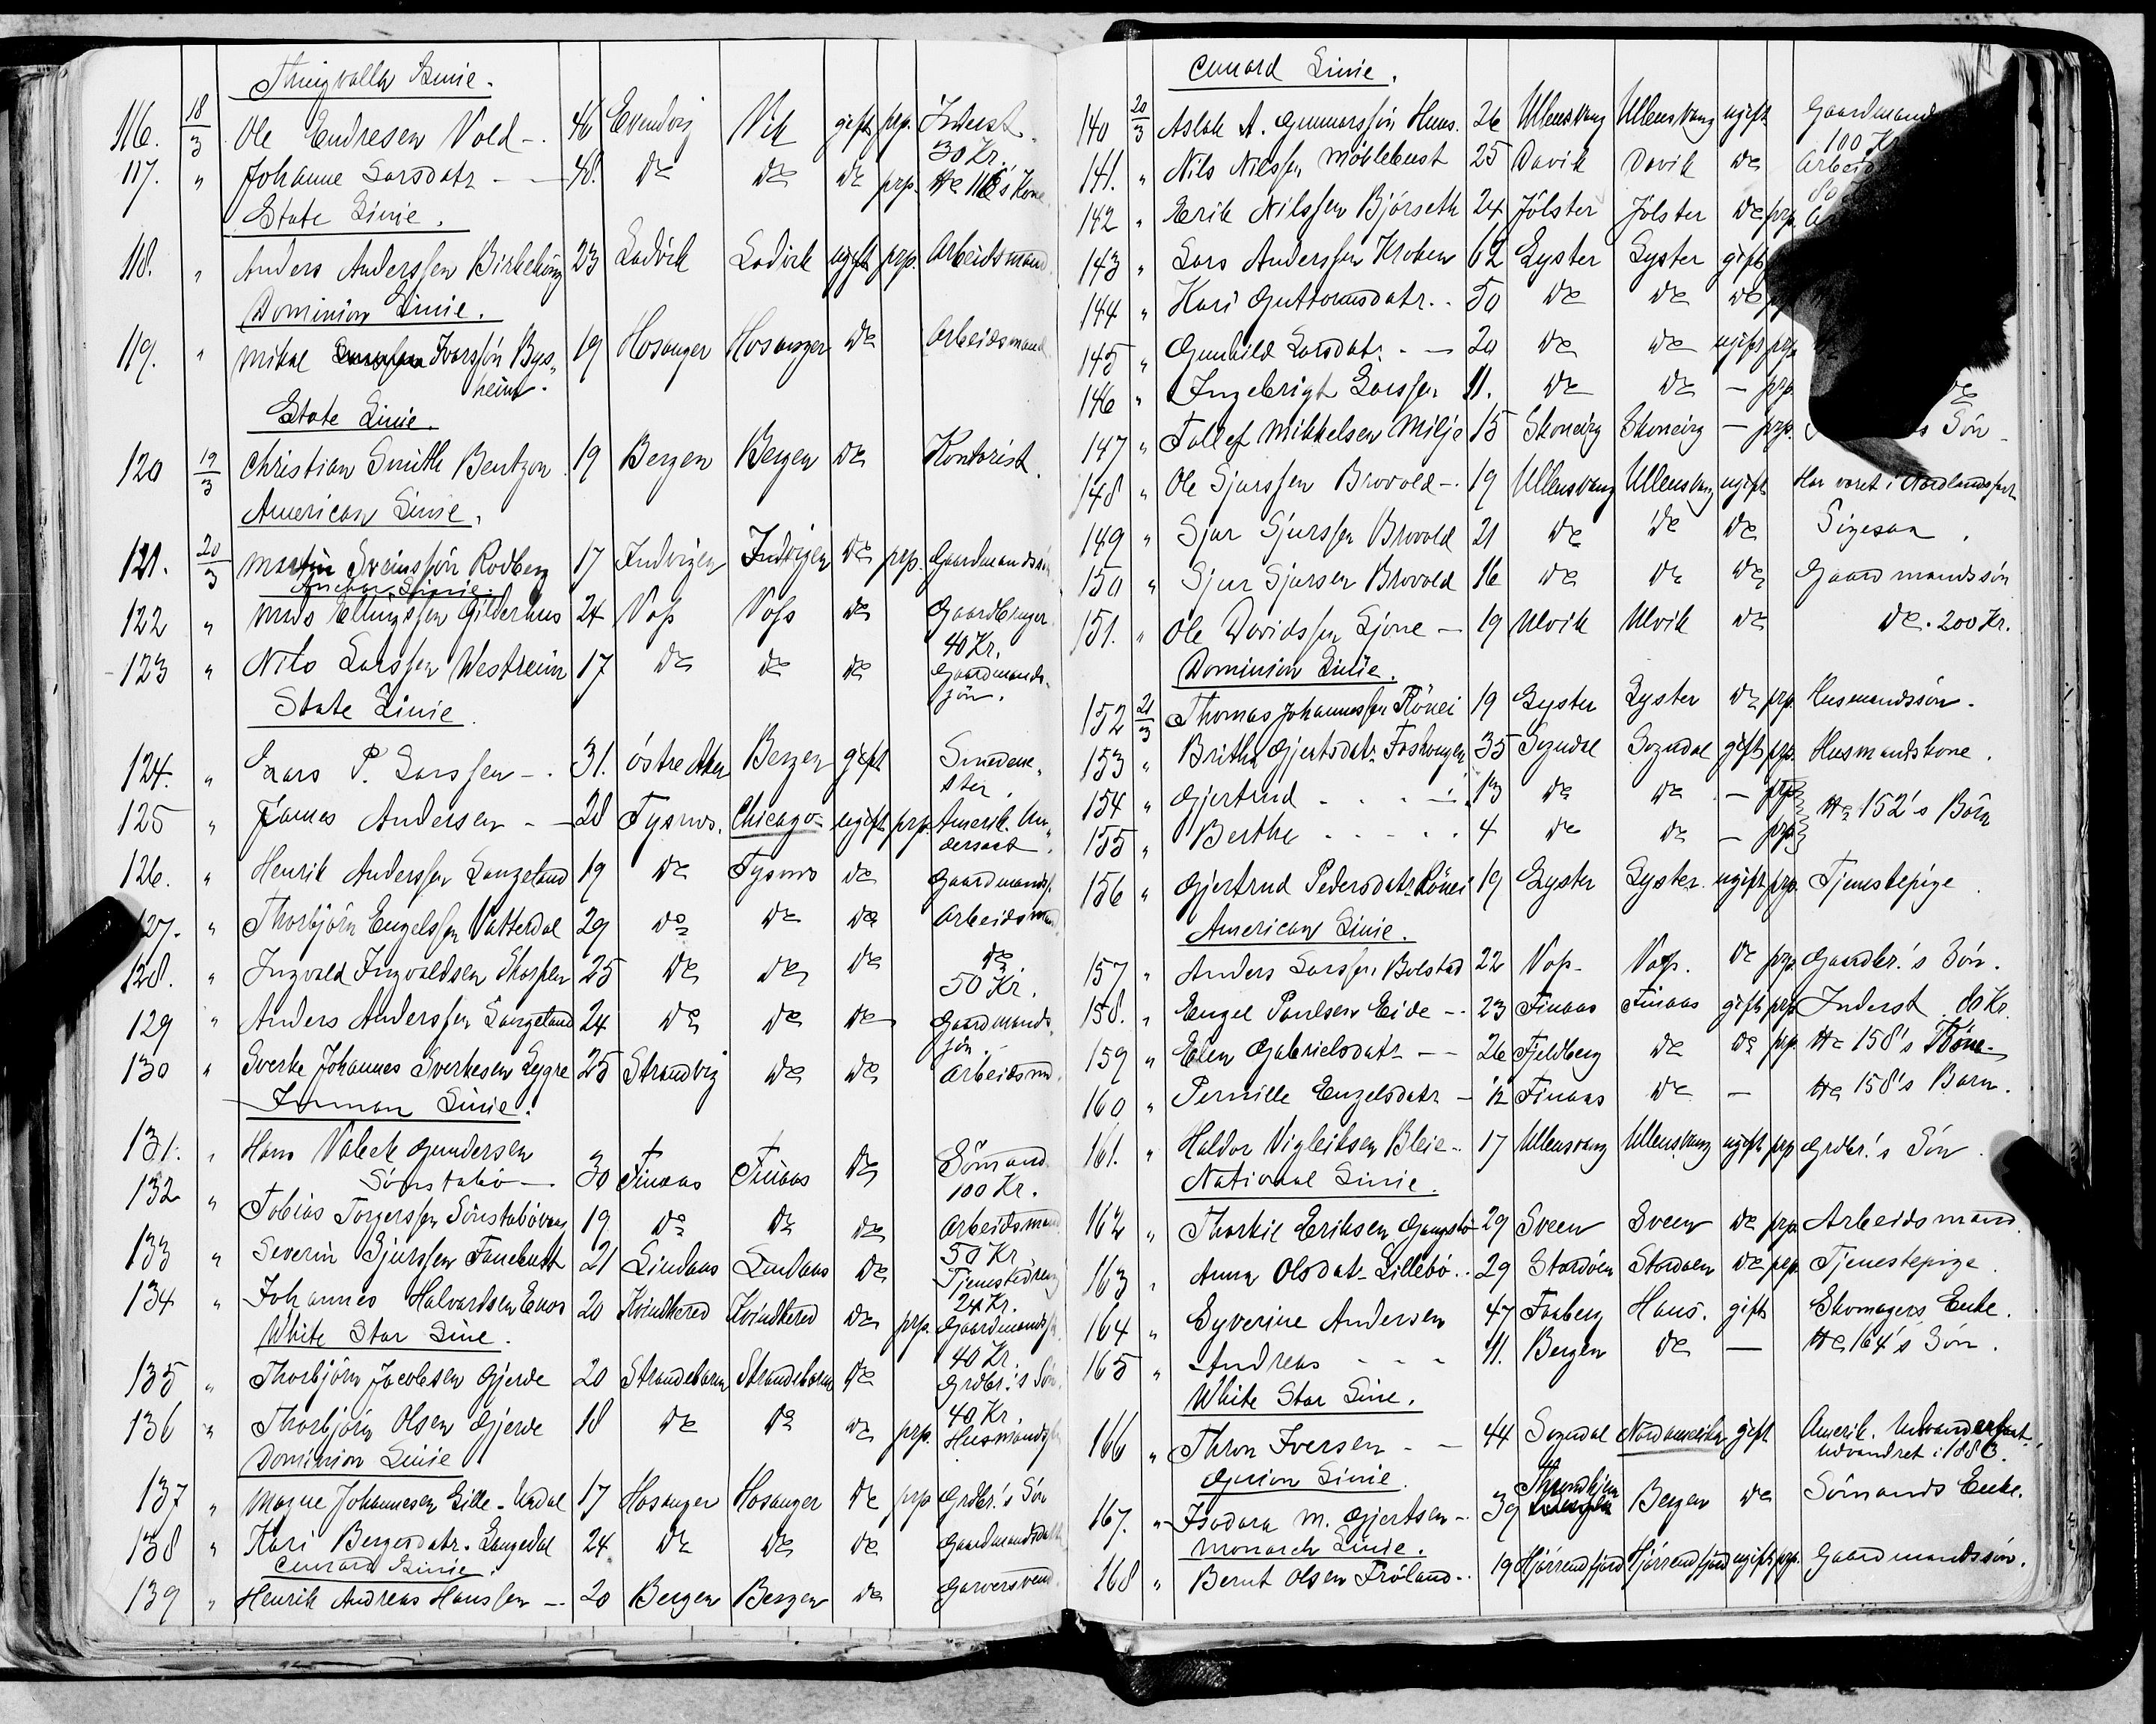 Thingvalla Linie.
116. 18/3 Ole Endresen Vold - 46 Evindvig Vik gift prp. Inderst. 30 Kr.
117. " Johanne Larsdatr - - 48. do do do prp. No 116's Kone
State Linie.
118. " Anders Anderssen Birkeborg 23 Ladvik Ladvik ugift prp. Arbeidsmand.
Dominion Linie.
119. " Mikal Ivarssön Bys- 19 Hosanger Hosanger do Arbeidsmand
heim.
State Linie.
120 19/3 Christian Smith Bentzon 19 Bergen Bergen do Kontorist.
American Linie.
121. 20/3 Martin Sveinssön Rodberg 17 Indvigen Indvigen do prp. Gaardmandssön
Anchor Linie
122 " Mads Ellingssen Gilderhus 24 Voss Voss do Gaardbruger. 40 Kr.
123 " Nils Larssen Westreim 17 do do do Gaardmands-
sön.
State Linie.
124. " Lars P. Larssen - . 31. Östre Aker Bergen gift Smedme-
ster.
125 " James Andersen - - 28 Tysnes. Chicago ugift prp. Amerik. Un-
dersaat.
126. " Henrik Anderssen Langeland 19 do Tysnes do Gaardmandss.
127. " Thorbjörn Engelssen Vatterdal 29 do do do Arbeidsmand
128. " Ingvald Ingvaldsen Skorpen 25 do do do do 50 Kr.
129 " Anders Anderssen Langeland 24 do do do Gaardmands-
sön.
130 " Sverke Johannes Sverkesen Lygre 25 Strandvig do do Arbeidsmd.
Inman Linie.
131. " Hans Valeck Gundersen
Sönstabö - 30 Finaas Finaas do Sömand. 100 Kr.
132 " Tobias Torgerssen Sönstabövaag 19 do do do Arbeidsmand 50 Kr
133 " Severin Sjurssen Fanebust 21 Lindaas Lindaas do Tjenestedreng 24 Kr.
134 " Johannes Halvardsen Enes 20 Kvindhered Kvindhered do prp. Gaardmandss. 40 Kr.
White Star Line.
135 " Thorbjörn Jacobsen Gjerde 20 Strandebarm Strandebarm do Grdbr.'s Sön. 40 Kr
136 " Thorbjörn Olsen Gjerde 18 do do do prp. Husmandss
Dominion Linie
137 " Magne Johannesen Lille-Urdal 17 Hosanger Hosanger do prp Grdbr.'s Sön
138 " Kari Bergesdatr. Langedal 24 do do do Gaardmandsdatter
Cunard Linie.
139 " Henrik Andreas Hanssen - 20 Bergen Bergen do Garversvend.
Cunard Linie.
140 20/3 Aslak A. Gunnarssön Huus. 26 Ullensvang Ullensvang ugift Gaardmand 100 Kr
141. " Nils Nilssen Möklebust 25 Davik Davik do Arbeids
142 " Erik Nilssen Bjórseth 24 Jölster Jölster do prp.
143 " Lars Anderssen Kroken 62 Lyster Lyster gift
144 " Kari Guttormsdatr. - 50 do do do
145 " Gunhild Larsdatr. - - 20 do do ugift prp.
146 " Ingebrigt Larssen 11. do do - prp. do
147 " Tollef Mikkelsen Milje 15 Skonevig Skonevig - prp. Sön
148 " Ole Sjurssen Brovold - 19 Ullensvang Ullensvang ugift Har været i Nordlandsfart
149 " Sjur Sjurssen Brovold 21 do do do Ligesaa.
150 " Sjur Sjursen Brovold 16 do do do Gaardmandssön
151. " Ole Davidssen Ljone - 19 Ulvik Ulvik do do. 200 Kr.
Dominion Linie.
152 21/3 Thomas Johannessen Rönei 19 Lyster Lyster do prp. Husmandssön.
153 " Britha Gjertsdatr. Foshaugen 35 Sogndal Sogndal gift prp. Husmandskone.
154 " Gjertrud - - - 13 do do - prp. No 152's Börn
155 " Berthe - - - 4 do do - prp.
156 " Gjertrud Pedersdatr. Rönei 19 Lyster Lyster. ugift prp. Tjenestepige.
American Linie.
157 " Anders Larssen Bolstad 22 Voss. Voss. do prp. Gaardbr.'s Sön.
158. " Engel Paulsen Eide - 23 Finaas Finaas gift prp Inderst. 80 Kr.
159 " Elen Gabrielsdatr - - 26 Fjeldberg do do prp. No 158's Kone.
160 " Pernille Engelsdatr - 1/2 Finaas do - No 158's Barn.
161. " Haldor Vigleiksen Bleie - 17 Ullensvang Ullensvang ugift prp Grdbr.'s Sön.
National Linie.
162 " Thorkil Eriksen Gangstö 29 Sveen Sveen do prp. Arbeidsmand.
163 " Anna Olsdatr Lillebö - 29 Stordöen Stordöen do prp. Tjenestepige.
164 " Eyverine Andersen 47 Faaberg Haus. gift Skomagers Enke.
165 " Andreas - - - 11. Bergen do - No 164's Sön.
White Star Line.
166 " Thron Iversen - - 44 Sogndal Nordamerika gift Amerik. Undersaat, udvandret i 1883.
Gurion Linie.
167. " Isadora M. Gjertsen - 39 Throndhjem Bergen do Sömands Enke.
Monarch Linie.
168 " Bernt Olsen Fröland - 19 Hjörrendfjord Hjörrendfjord ugift prp. Gaardmandssön.